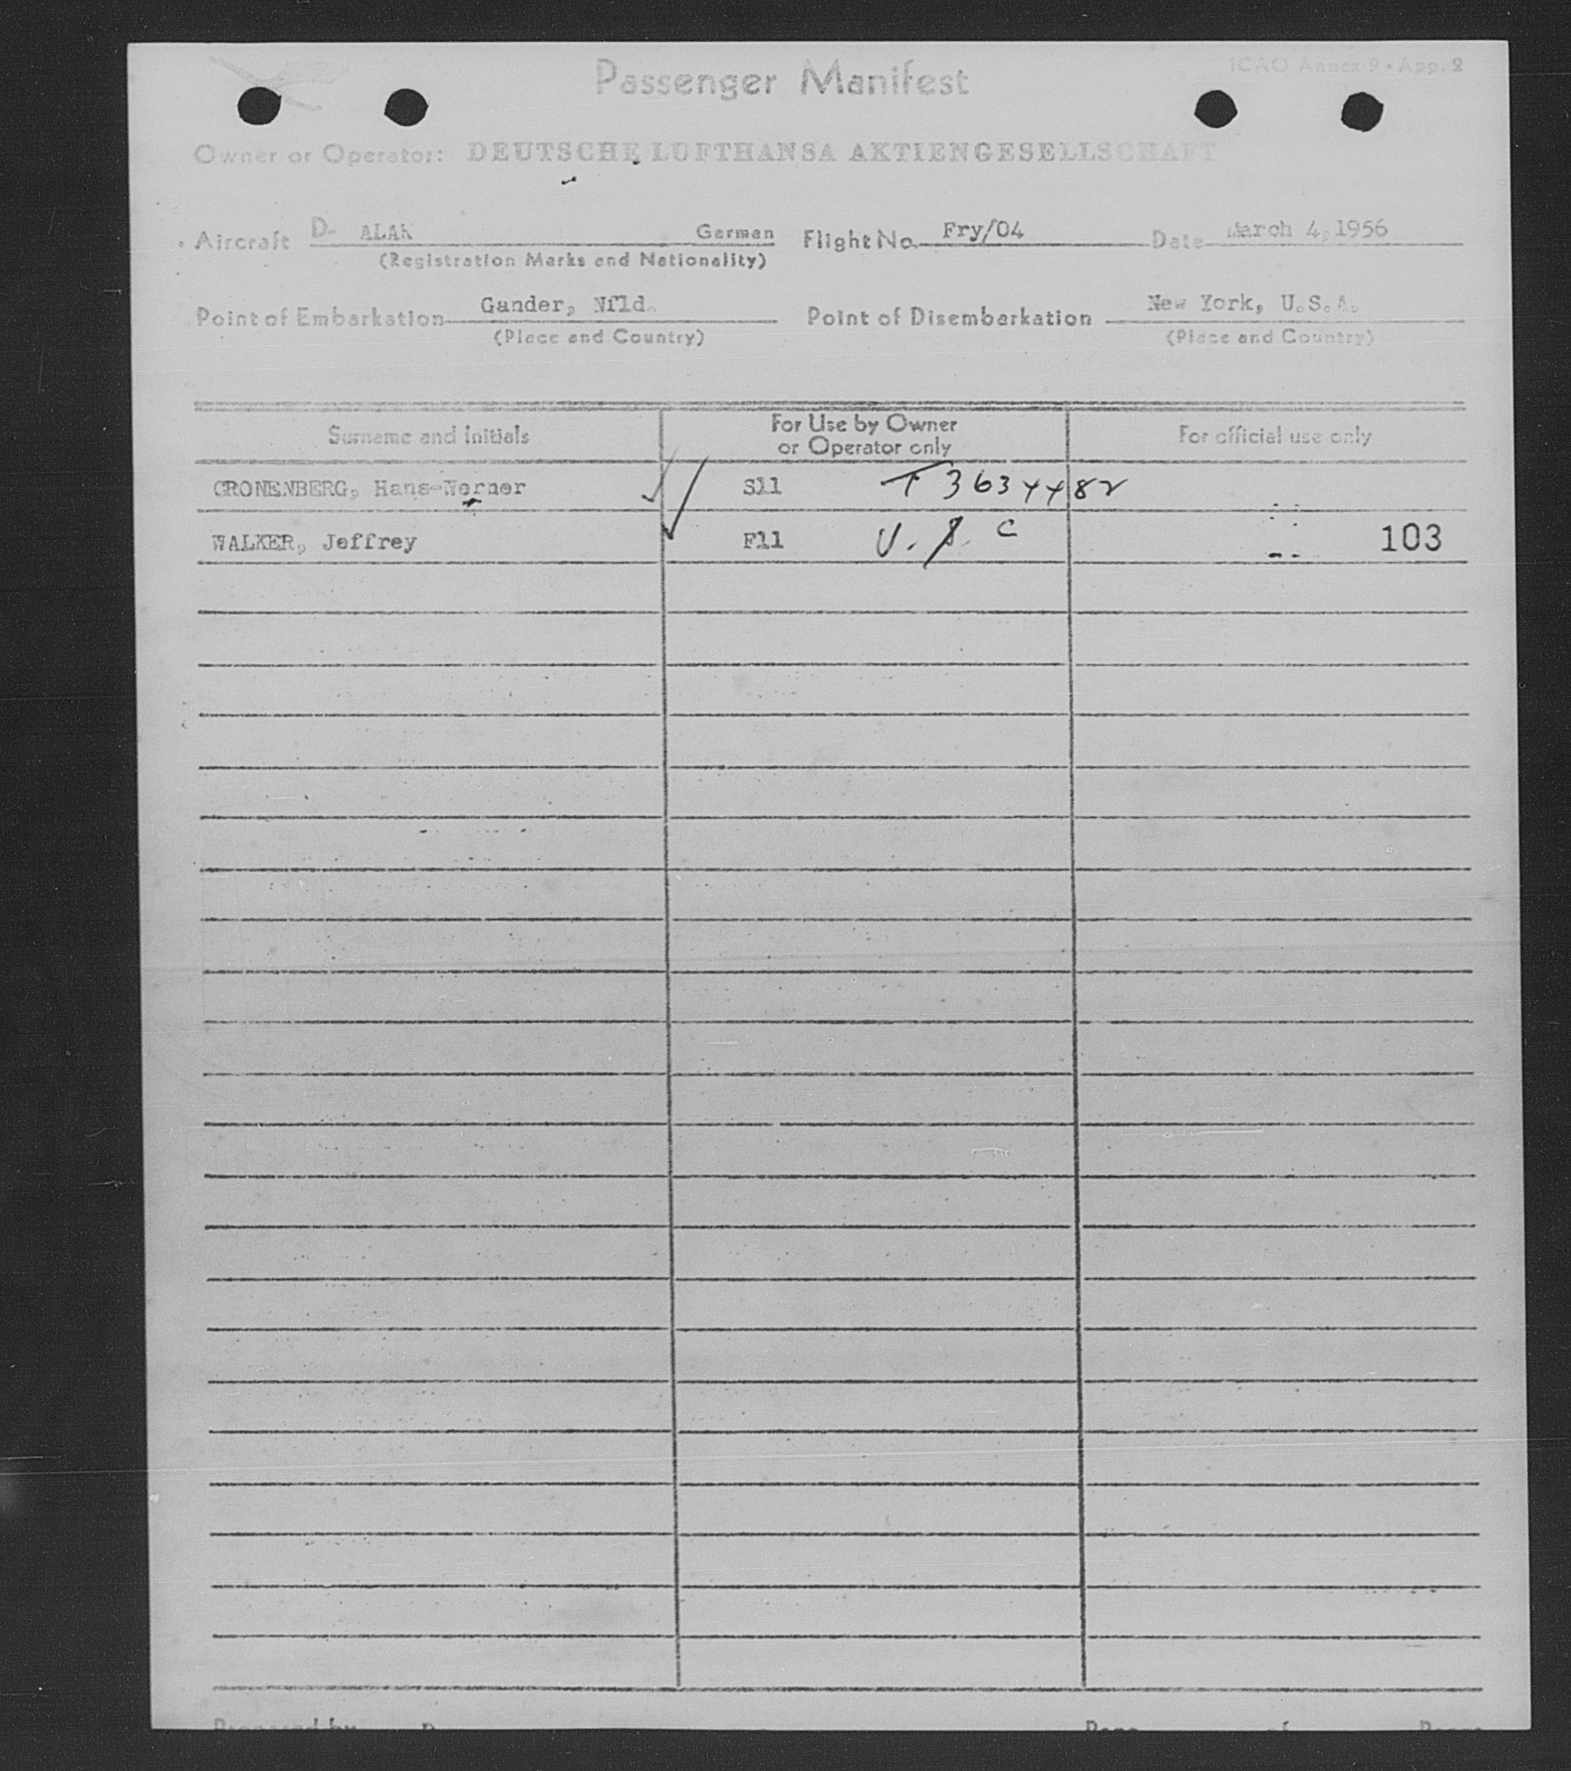 ICAO Annex 9 • App. 2
Passenger Manifest
Owner or Operator: DEUTSCHE LUFTHANSA AKTIENGESELLSCHAFT
Aircraft D- ALAK German Flight No. Fry/04 Date March 4, 1956
(Registration Marks and Nationality)
Point of Embarkation Gander, Nfld. Point of Disembarkation New York, U.S.A.
(Place and Country) (Place and Country)
Surname and Initials For Use by Owner or Operator only For official use only
CRONENBERG, Hans-Werner S11 T 3634482
WALKER, Jeffrey F11 U.S.C 103
Prepared by Page of Pages